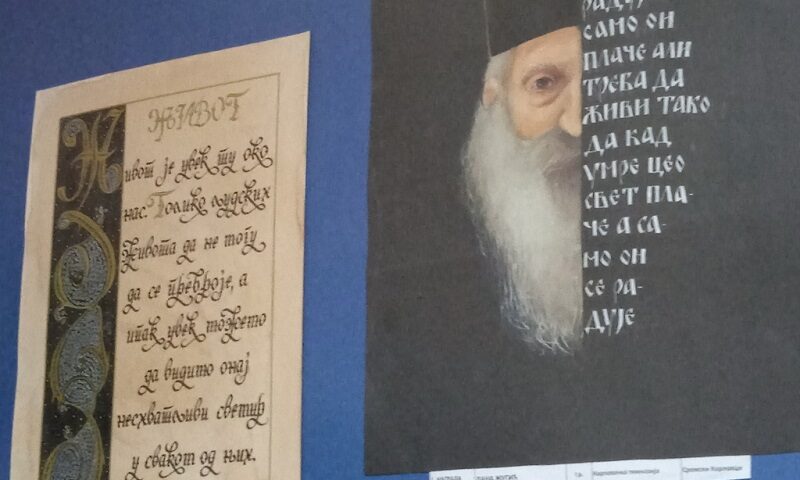 ЖИВОТ
Живот је увек ту око
нас. Толико људских
живота да не могу
да се преброје, а
ипак увек можемо
да видимо онај
несхватљиви свемир
у сваком од њих.
САМО ОН
ПЛАЧЕ АЛИ
ТРЕБА ДА
ЖИВИ ТАКО
ДА КАД
УМРЕ ЦЕО
СВЕТ ПЛА-
ЧЕ А СА-
МО ОН
СЕ РА-
ДУЈЕ
Карловачка гимназија Сремски Карловци